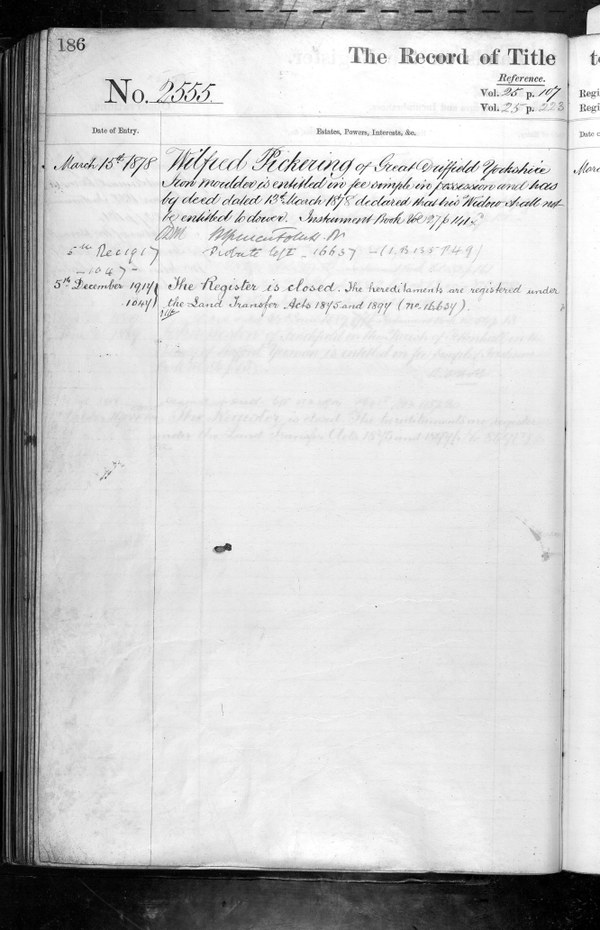 186
The Record of Title
Reference.
No. 2555.
Vol. 25 p. 107
Vol. 25 p. 223
Date of Entry.
Estates, Powers, Interests, &c.
March 15th 1878
Wilfred Pickering of Great Driffield Yorkshire
Iron moulder is entitled in fee simple in possession and has
by deed dated 13th March 1878 declared that his Widow shall not
be entitled to dower. Instrument Book 127 p 141
5th Dec 1917
Probate 16637 (I.B 135 P 49)
1047
5th December 1917
1047
The Register is closed. The hereditaments are registered under
the Land Transfer Acts 1875 and 1897 (No. 16637).
t
Regi
Regi
Date o
Marc